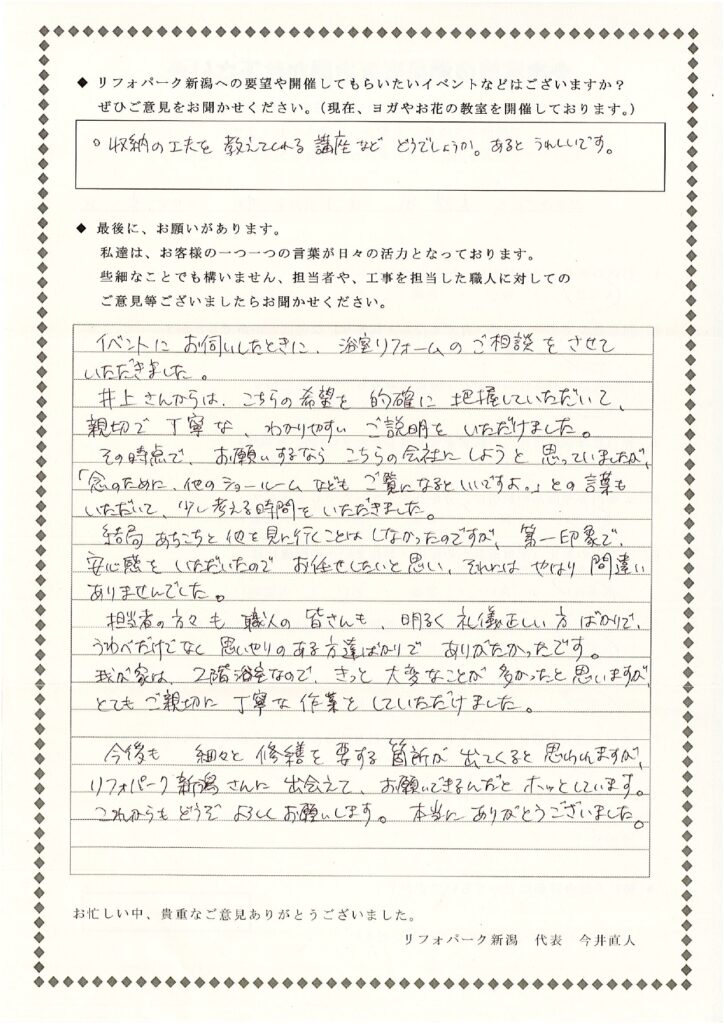 ◆ リフォパーク新潟への要望や開催してもらいたいイベントなどはございますか?
ぜひご意見をお聞かせください。(現在、ヨガやお花の教室を開催しております。)
○収納の工夫を 教えてくれる 講座など どうでしょうか。あると うれしいです。
◆ 最後に、お願いがあります。
私達は、お客様の一つ一つの言葉が日々の活力となっております。
些細なことでも構いません、担当者や、工事を担当した職人に対しての
ご意見等ございましたらお聞かせください。
イベントに お伺いしたときに、浴室リフォームの ご相談を させて
いただきました。
井上さんからは、こちらの希望を 的確に 把握していただいて、
親切で 丁寧な、わかりやすい ご説明を いただけました。
その時点で、お願いするなら こちらの会社にしようと 思っていましたが、
「念のために、他のショールームなども ご覧になるといいですよ。」との言葉も
いただいて、少し考える時間を いただきました。
結局 あちこちと 他を見に行くことは しなかったのですが、第一印象で、
安心感を いただいたので お任せしたいと思い、それには やはり 間違い
ありませんでした。
担当者の方々も 職人の 皆さんも、明るく 礼儀正しい 方 ばかりで、
うわべだけでなく 思いやりのある方達ばかりで ありがたかったです。
我が家は、2階浴室なので、きっと 大変なことが 多かったと思いますが、
とても ご親切に 丁寧な 作業を していただけました。
今後も 細々と 修繕を 要する 箇所が 出てくると 思われますが、
リフォパーク新潟さんに 出会えて、お願いできるんだと ホッとしています。
これからも どうぞ よろしく お願いします。 本当に ありがとうございました。
お忙しい中、貴重なご意見ありがとうございました。
リフォパーク新潟 代表 今井直人